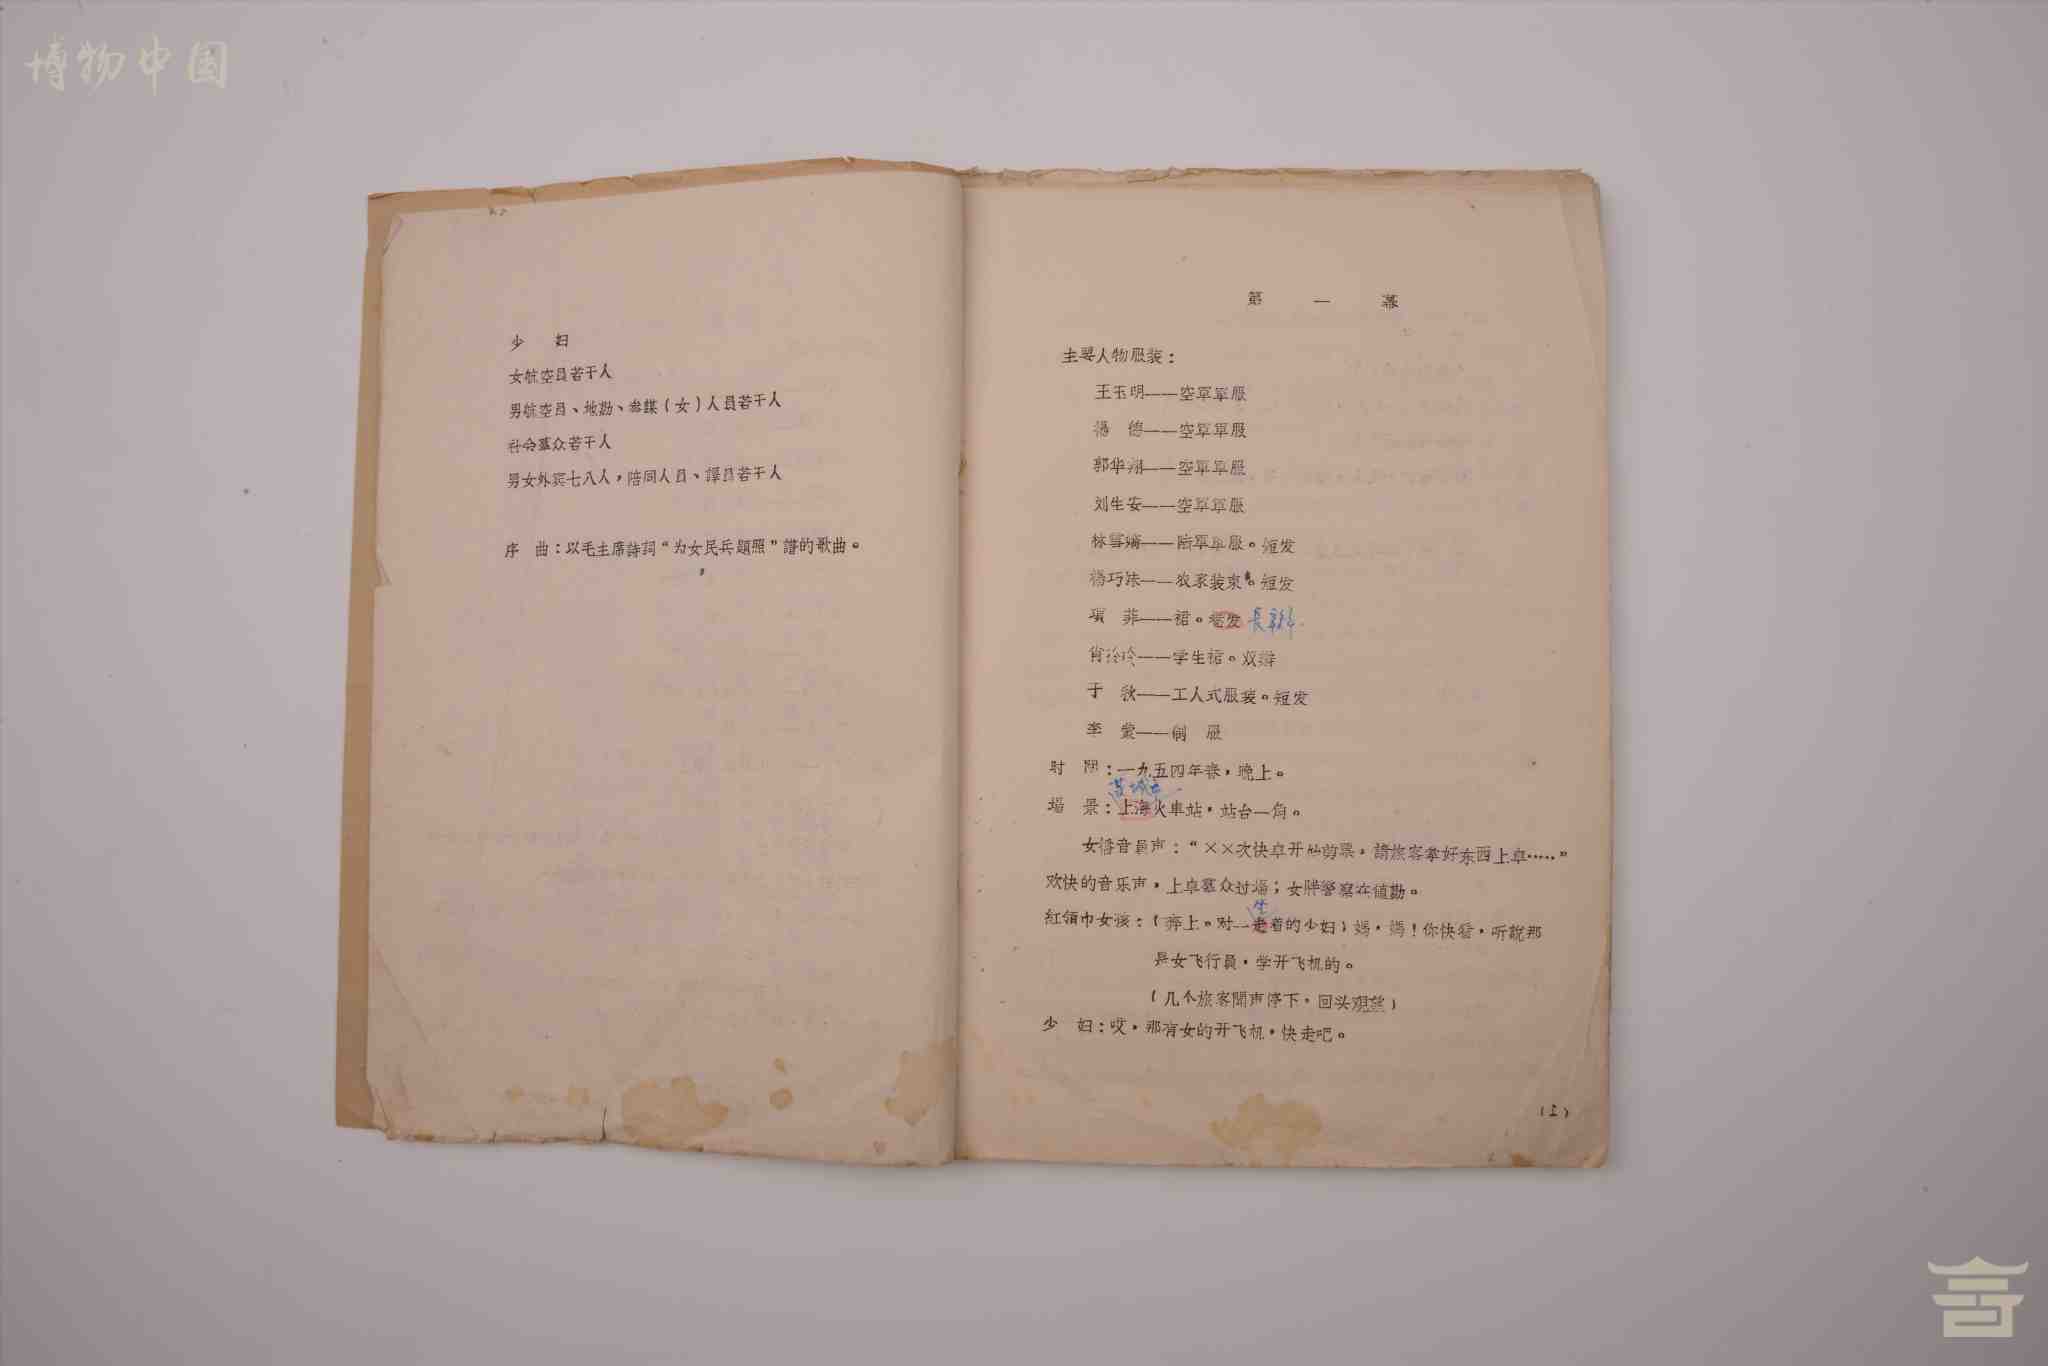 博物中国
少　妇
女航空員若干人
男航空員、地勤、参謀（女）人員若干人
社会羣众若干人
男女外宾七八人，陪同人員、譯員若干人
序　曲：以毛主席詩詞“为女民兵題照”譜的歌曲。
第　一　幕
主要人物服装：
王玉明——空軍軍服
楊　德——空軍軍服
郭华翔——空軍軍服
刘生安——空軍軍服
林雪嬌——陆軍軍服。短发
楊巧妹——农家装束。短发
項　菲——裙。卷发 長辛辮
肖玲玲——学生裙。双辮
于　秋——工人式服装。短发
李　蒙——制　服
时　間：一九五四年春，晚上。
場　景：上海火車站，站台一角。
女播音員声：“××次快車开始剪票，請旅客拿好东西上車……”
欢快的音乐声，上車羣众过場；女民警察在値勤。
坐
紅領巾女孩：（奔上。对一走着的少妇）媽，媽！你快看，听說那
是女飞行員，学开飞机的。
（几个旅客聞声停下，回头观望）
少　妇：哎，那有女的开飞机，快走吧。
（1）